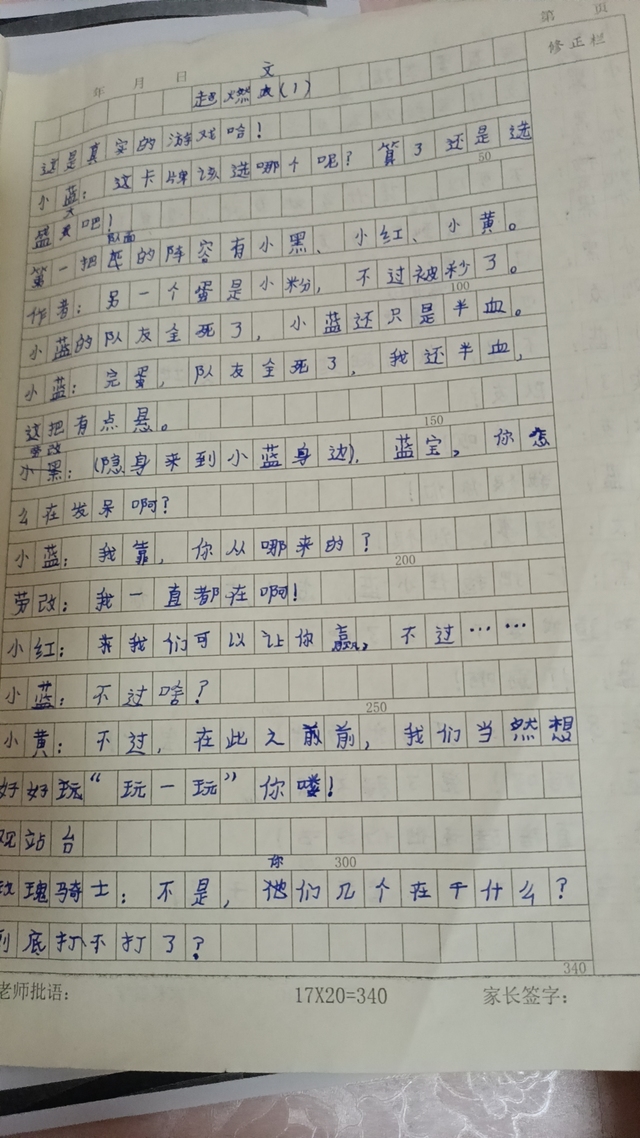 第 页
修正栏
年 月 日
超燃文(1)
这是真实的游戏哈!
小蓝: 这卡牌该选哪个呢? 算了还是选
盛大吧!
第一把对面的阵容有小黑、小红、小黄。
作者: 另一个蛋是小粉, 不过被秒了。
小蓝的队友全死了, 小蓝还只是半血。
小蓝: 完蛋, 队友全死了, 我还半血,
这把有点悬。
劳改
小黑: (隐身来到小蓝身边), 蓝宝, 你怎
么在发呆啊?
小蓝: 我靠, 你从哪来的?
劳改: 我一直都在啊!
小红: 我们可以让你赢, 不过……
小蓝: 不过啥?
小黄: 不过, 在此之前, 我们当然想
好好玩“玩一玩”你喽!
观站台
玫瑰骑士: 不是, 你们几个在干什么?
到底打不打了?
50
100
150
200
250
300
340
老师批语:
17X20=340
家长签字: